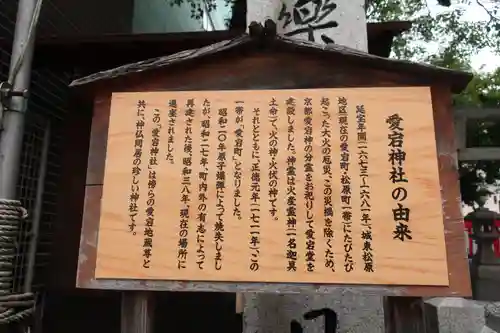 樂
愛宕神社の由来
延宝年間（一六七三〜一六八一年）、城東松原
地区（現在の愛宕町・松原町一帯）にたびたび
起こった大火の厄災、この災橋を除くため、
京都愛宕神の分霊をお祀りして愛宕堂を
建設しました。神霊は火産霊神（一名迦具
土命）で、火の神・火伏の神です。
それとともに、正徳元年（一七一一年）、この
一帯が「愛宕町」となりました。
昭和二〇年原子爆弾によって焼失しまし
たが、昭和二七年、町内外の有志によって
再建された後、昭和三八年、現在の場所に
遷座されました。
この「愛宕神社」は傍らの愛宕地蔵尊と
共に、神仏同居の珍しい神社です。